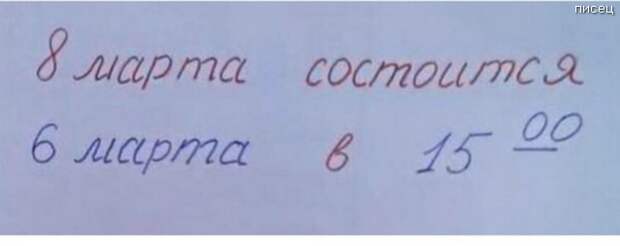 писец
8 марта состоится
6 марта в 15 00